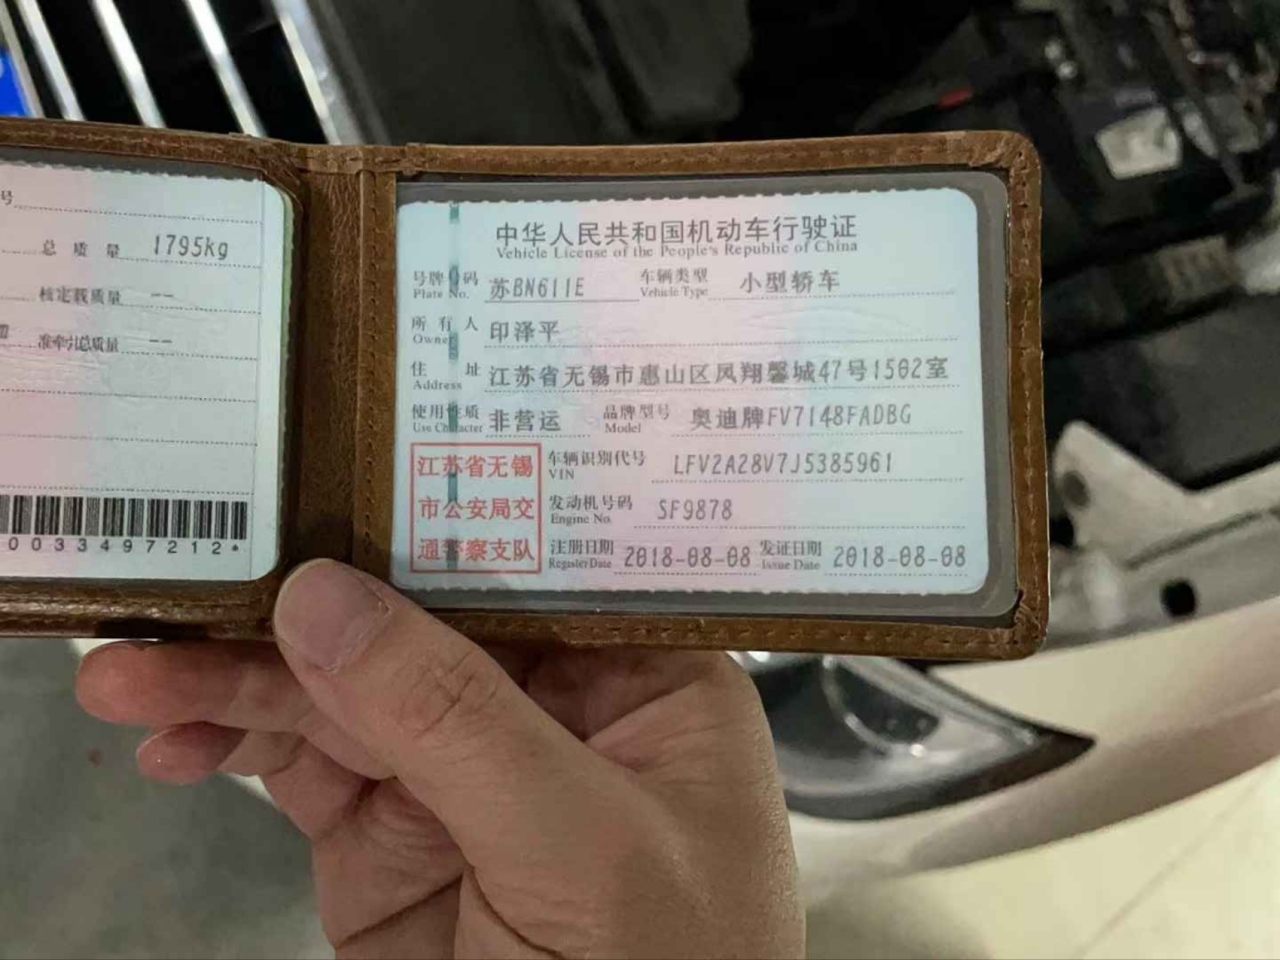 号
总质量 1795kg
核定载质量 --
准牵引总质量 --
0033497212*
中华人民共和国机动车行驶证
Vehicle License of the People's Republic of China
号牌号码 苏BN611E 车辆类型 小型轿车
Plate No. Vehicle Type
所有人 印泽平
Owner
住址 江苏省无锡市惠山区凤翔馨城47号1502室
Address
使用性质 非营运 品牌型号 奥迪牌FV7148FADBG
Use Character Model
江苏省无锡
市公安局交
通警察支队
车辆识别代号 LFV2A28V7J5385961
VIN
发动机号码 SF9878
Engine No.
注册日期 2018-08-08 发证日期 2018-08-08
Register Date Issue Date